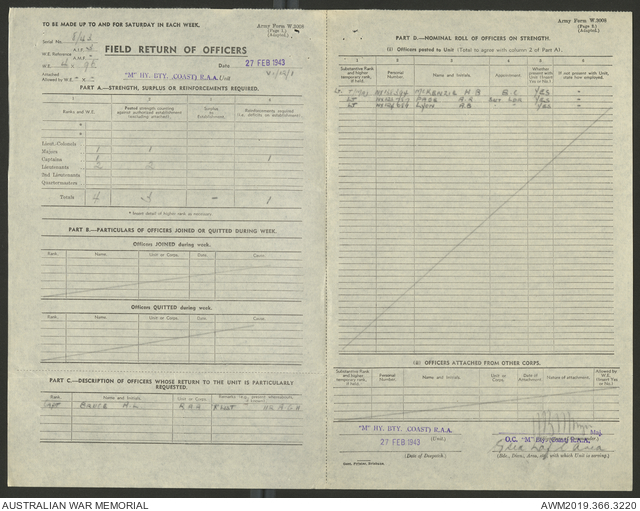 TO BE MADE UP TO AND FOR SATURDAY IN EACH WEEK.
Army Form W.3008
(Page 1.)
(Adapted.)
Serial No.
FIELD RETURN OF OFFICERS
W.E. Reference
A.I.F.
A.M.F.
W.E.
Date 27 FEB 1943
Attached
Allowed by W.E.
"M" HY. BTY. (COAST) R.A.A. Unit
PART A.—STRENGTH, SURPLUS OR REINFORCEMENTS REQUIRED.
1 2 3 4
Ranks and W.E.
Posted strength counting against authorized establishment (excluding attached).
Surplus to Establishment.
Reinforcements required (i.e. deficits on establishment).
Lieut.-Colonels
Majors 1 1
Captains 1 1
Lieutenants 2 2
2nd Lieutenants
Quartermasters
Totals 4 3 - 1
* Insert detail of higher rank as necessary.
PART B.—PARTICULARS OF OFFICERS JOINED OR QUITTED DURING WEEK.
Officers JOINED during week.
Rank. Name. Unit or Corps. Date. Cause.
Officers QUITTED during week.
Rank. Name. Unit or Corps. Date. Cause.
PART C.—DESCRIPTION OF OFFICERS WHOSE RETURN TO THE UNIT IS PARTICULARLY REQUESTED.
Rank. Name and Initials. Unit or Corps.
Capt H.L. R.A.A.
Army Form W.3008
(Page 2.)
(Adapted.)
PART D.—NOMINAL ROLL OF OFFICERS ON STRENGTH.
(1) Officers posted to Unit (Total to agree with column 2 of Part A).
1 2 3 4 5 6
Substantive Rank and higher temporary rank, if held.
Personal Number.
Name and Initials.
Appointment.
Whether present with Unit (Insert Yes or No).
If not present with Unit, state how employed.
McKENZIE H B B.C. Yes -
Lt Yes -
Lt Lyon Yes -
(2) OFFICERS ATTACHED FROM OTHER CORPS.
Substantive Rank and higher temporary rank, if held.
Personal Number.
Name and Initials.
Unit or Corps.
Date of Attachment.
Nature of attachment.
Allowed by W.E. (Insert Yes or No.)
"M" HY. BTY. (COAST) R.A.A.
(Unit.)
27 FEB 1943
(Date of Despatch.)
Maj.
O.C. "M" Hy. Bty. (Coast) R.A.A.
Area
AUSTRALIAN WAR MEMORIAL
AWM2019.366.3220